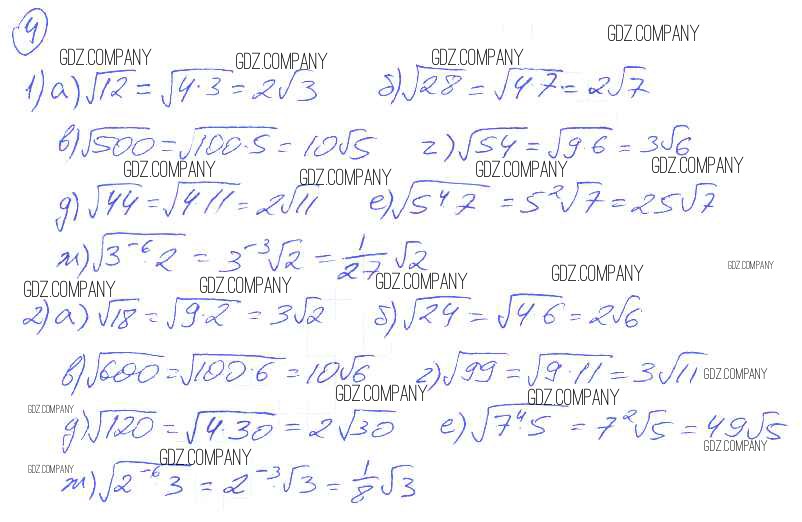 4
GDZ.COMPANY GDZ.COMPANY GDZ.COMPANY GDZ.COMPANY
1) а) √12 = √4·3 = 2√3 б) √28 = √4 7 = 2√7
в) √500 = √100·5 = 10√5 г) √54 = √9·6 = 3√6
GDZ.COMPANY GDZ.COMPANY GDZ.COMPANY GDZ.COMPANY
д) √44 = √4 11 = 2√11 е) √5⁴ 7 = 5²√7 = 25√7
ж) √3⁻⁶·2 = 3⁻³√2 = 1/27 √2
GDZ.COMPANY GDZ.COMPANY GDZ.COMPANY GDZ.COMPANY GDZ.COMPANY
2) а) √18 = √9·2 = 3√2 б) √24 = √4 6 = 2√6
в) √600 = √100·6 = 10√6 г) √99 = √9·11 = 3√11 GDZ.COMPANY
GDZ.COMPANY GDZ.COMPANY GDZ.COMPANY
д) √120 = √4·30 = 2√30 е) √7⁴·5 = 7²√5 = 49√5
GDZ.COMPANY GDZ.COMPANY GDZ.COMPANY
ж) √2⁻⁶·3 = 2⁻³·√3 = 1/8 √3